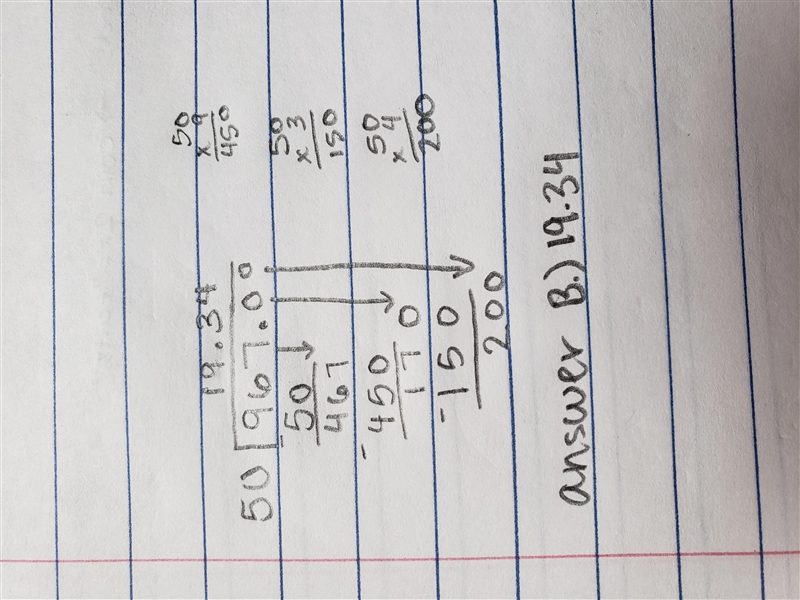 19.34
50 967.00
- 50
467
- 450
170
- 150
200
50
x 9
450
50
x 3
150
50
x 4
200
answer B.) 19.34